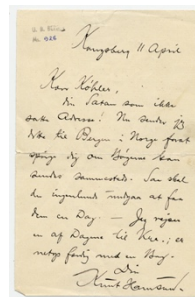 Kongsberg 11 April
Kære Köhler,
din Satan som ikke
satte Adresse! Nu sender jeg
dette til Bergen i Norge forat
spørge dig om Bøgerne kan
sendes sammesteds. Saa skal
du ingenlunde undgaa at faa
dem en Dag. — Jeg rejser
en af Dagene til Kra.; er
netop færdig med en Bog.
Din
Knut Hamsun.